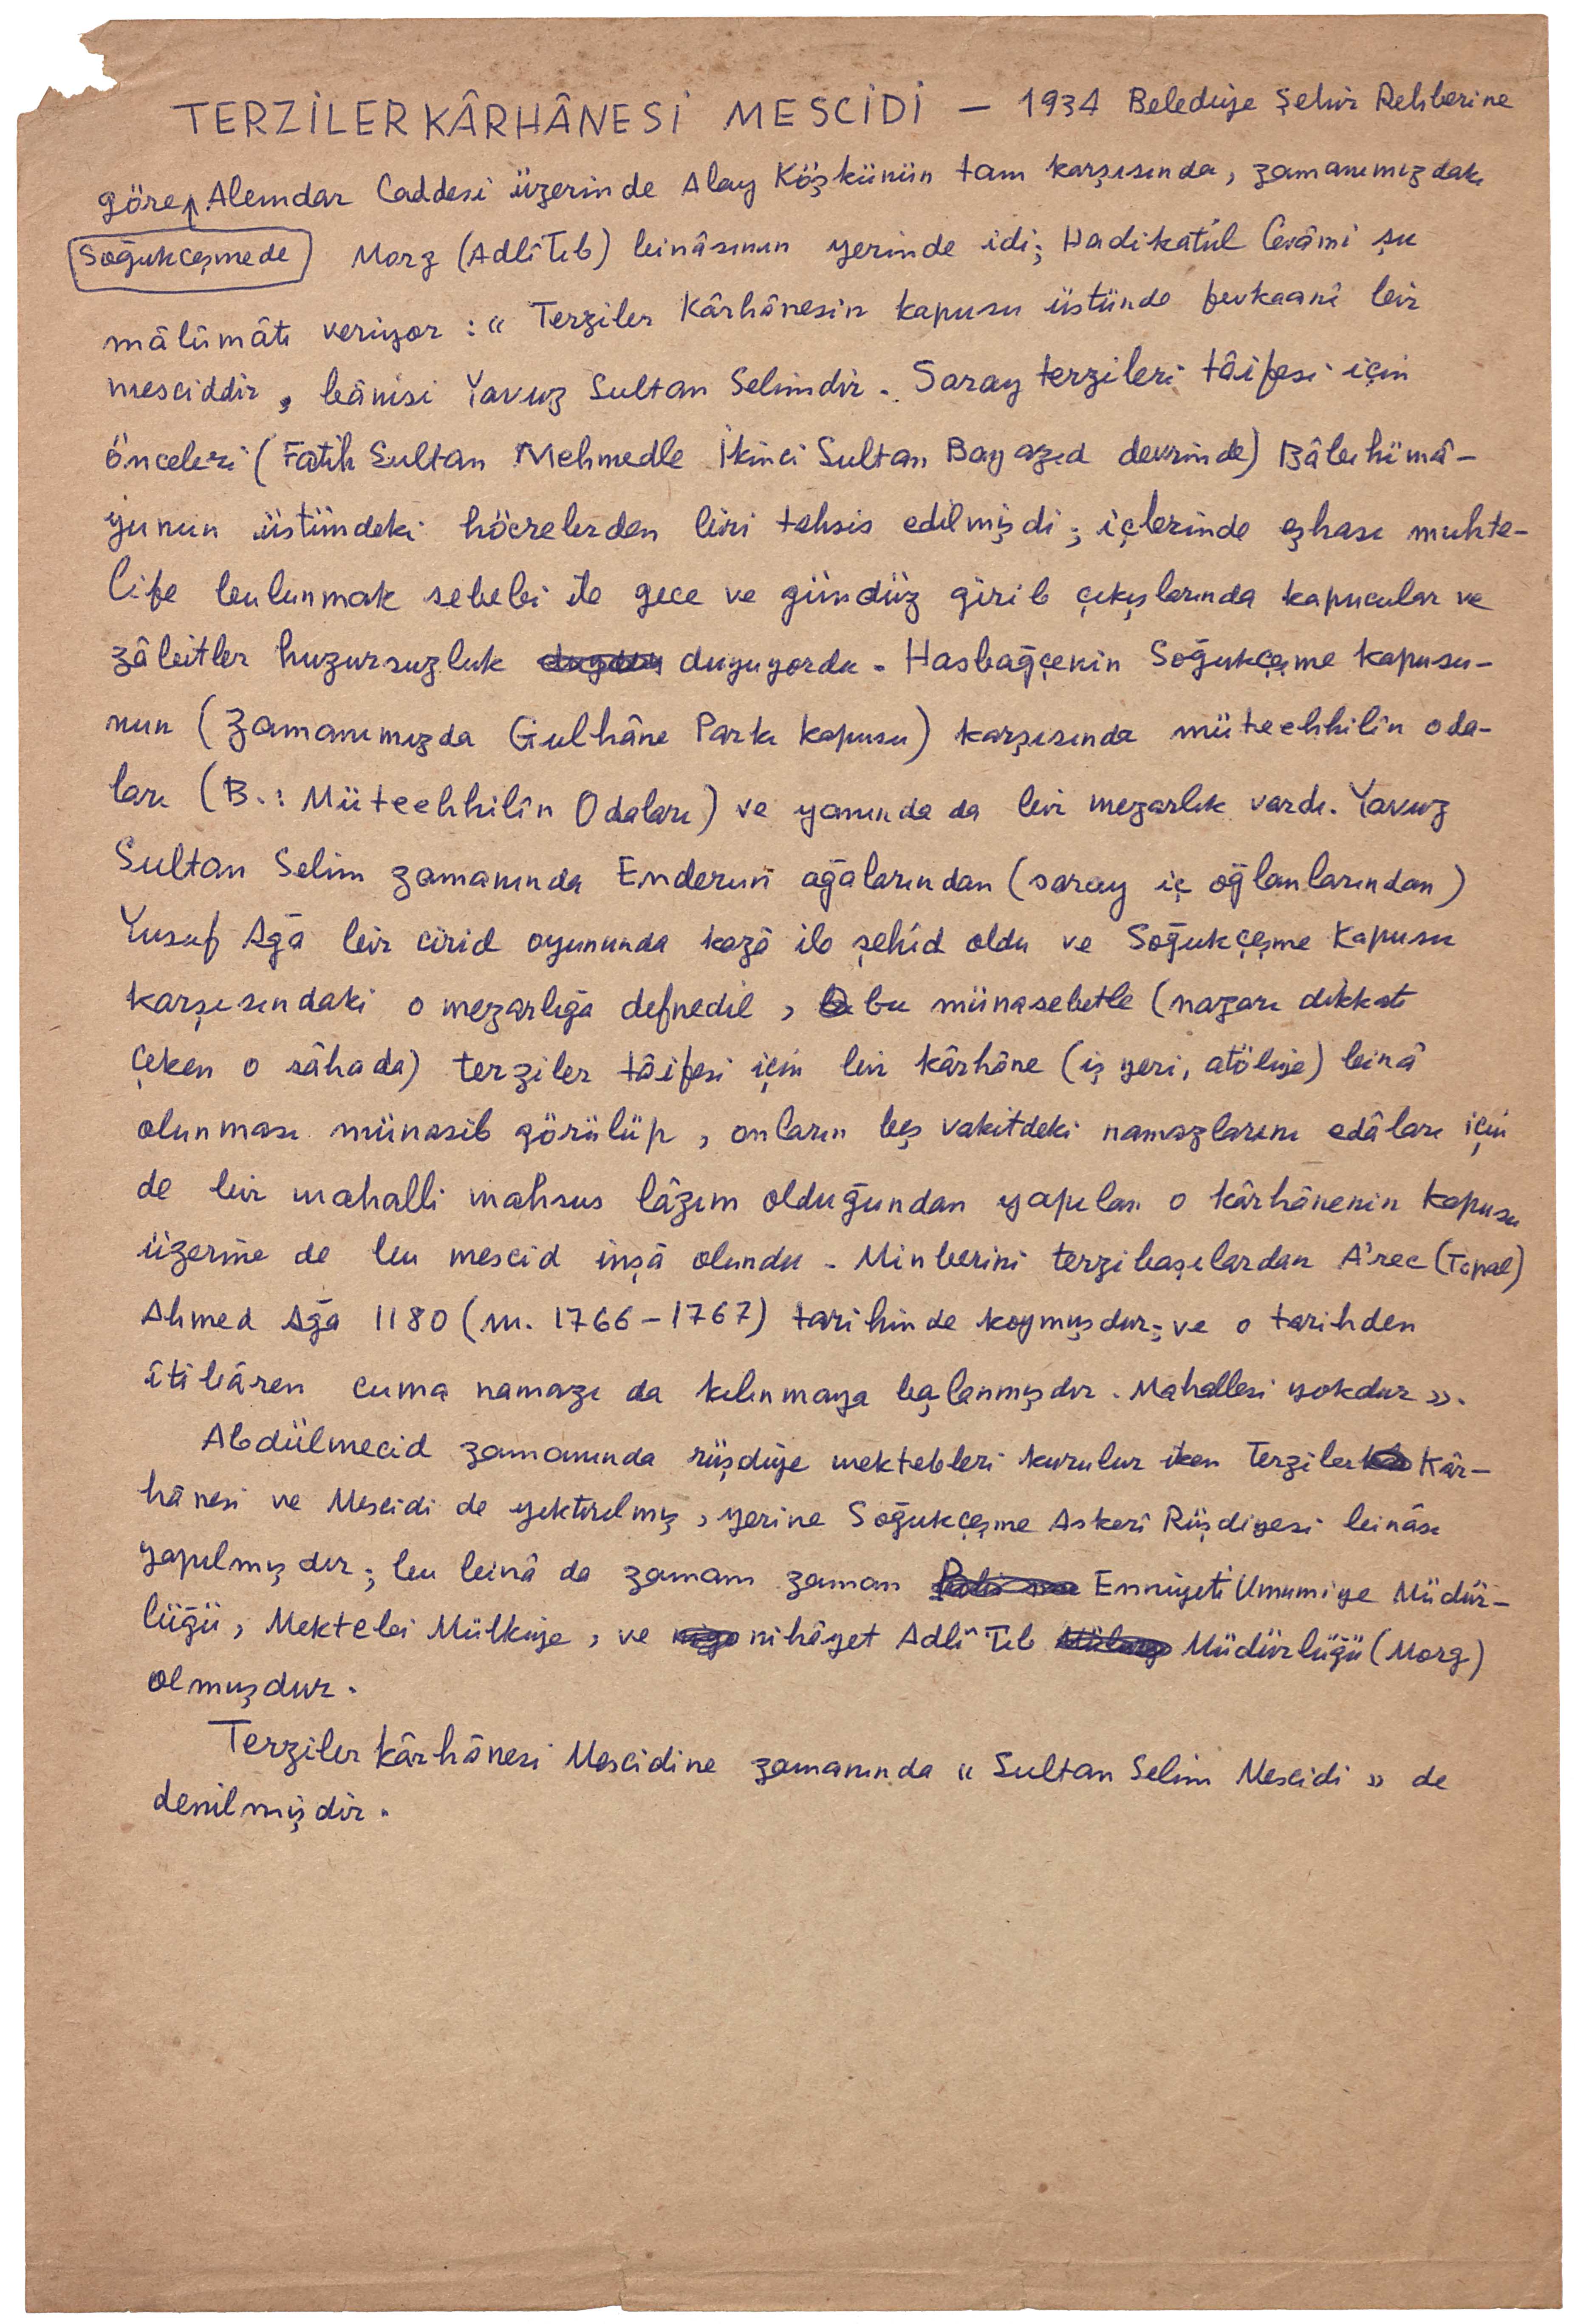 TERZİLER KÂRHÂNESİ MESCİDİ — 1934 Belediye Şehir Rehberine
göre Alemdar Caddesi üzerinde Alay Köşkünün tam karşısında, zamanımızdaki
Soğukçeşmede Morg (Adlî Tıb) binâsının yerinde idi; Hadikatül Cevâmi şu
mâlûmâtı veriyor : « Terziler Kârhânesin kapusu üstünde fevkaanî bir
mesciddir, bânisi Yavuz Sultan Selimdir. Saray terzileri tâifesi için
önceleri (Fatih Sultan Mehmedle İkinci Sultan Bayazıd devrinde) Bâbıhümâ-
yunun üstündeki höcrelerden biri tahsis edilmişdi; içlerinde eşhası muhte-
life bulunmak sebebi ile gece ve gündüz girib çıkışlarında kapucular ve
zâbitler huzursuzluk duyuyordu. Hasbağçenin Soğukçeşme kapusu-
nun (zamanımızda Gülhâne Parkı kapusu) karşısında müteehhilîn oda-
ları (B.: Müteehhilîn Odaları) ve yanında da bir mezarlık vardı. Yavuz
Sultan Selim zamanında Enderun ağalarından (saray iç oğlanlarından)
Yusuf Ağa bir cirid oyununda kazâ ile şehid oldu ve Soğukçeşme Kapusu
karşısındaki o mezarlığa defnedil, bu münasebetle (nazarı dikkati
çeken o sâhada) terziler tâifesi için bir kârhâne (iş yeri, atölye) binâ
olunması münasib görülüp, onların beş vakitdeki namazlarını edâları için
de bir mahalli mahsus lâzım olduğundan yapılan o kârhânenin kapusu
üzerine de bu mescid inşâ olundu. Minberini terzibaşılardan A'rec (Topal)
Ahmed Ağa 1180 (m. 1766-1767) tarihinde koymuşdur; ve o tarihden
îtibâren cuma namazı da kılınmaya başlanmışdır. Mahallesi yokdur ».
Abdülmecid zamanında rüşdiye mektebleri kurulur iken Terziler Kâr-
hânesi ve Mescidi de yıktırılmış, yerine Soğukçeşme Askerî Rüşdiyesi binâsı
yapılmışdır; bu binâ da zaman zaman Emniyeti Umumiye Müdür-
lüğü, Mektebi Mülkiye, ve nihâyet Adlî Tıb Müdürlüğü (Morg)
olmuşdur.
Terziler kârhânesi Mescidine zamanında « Sultan Selim Mescidi » de
denilmişdir.